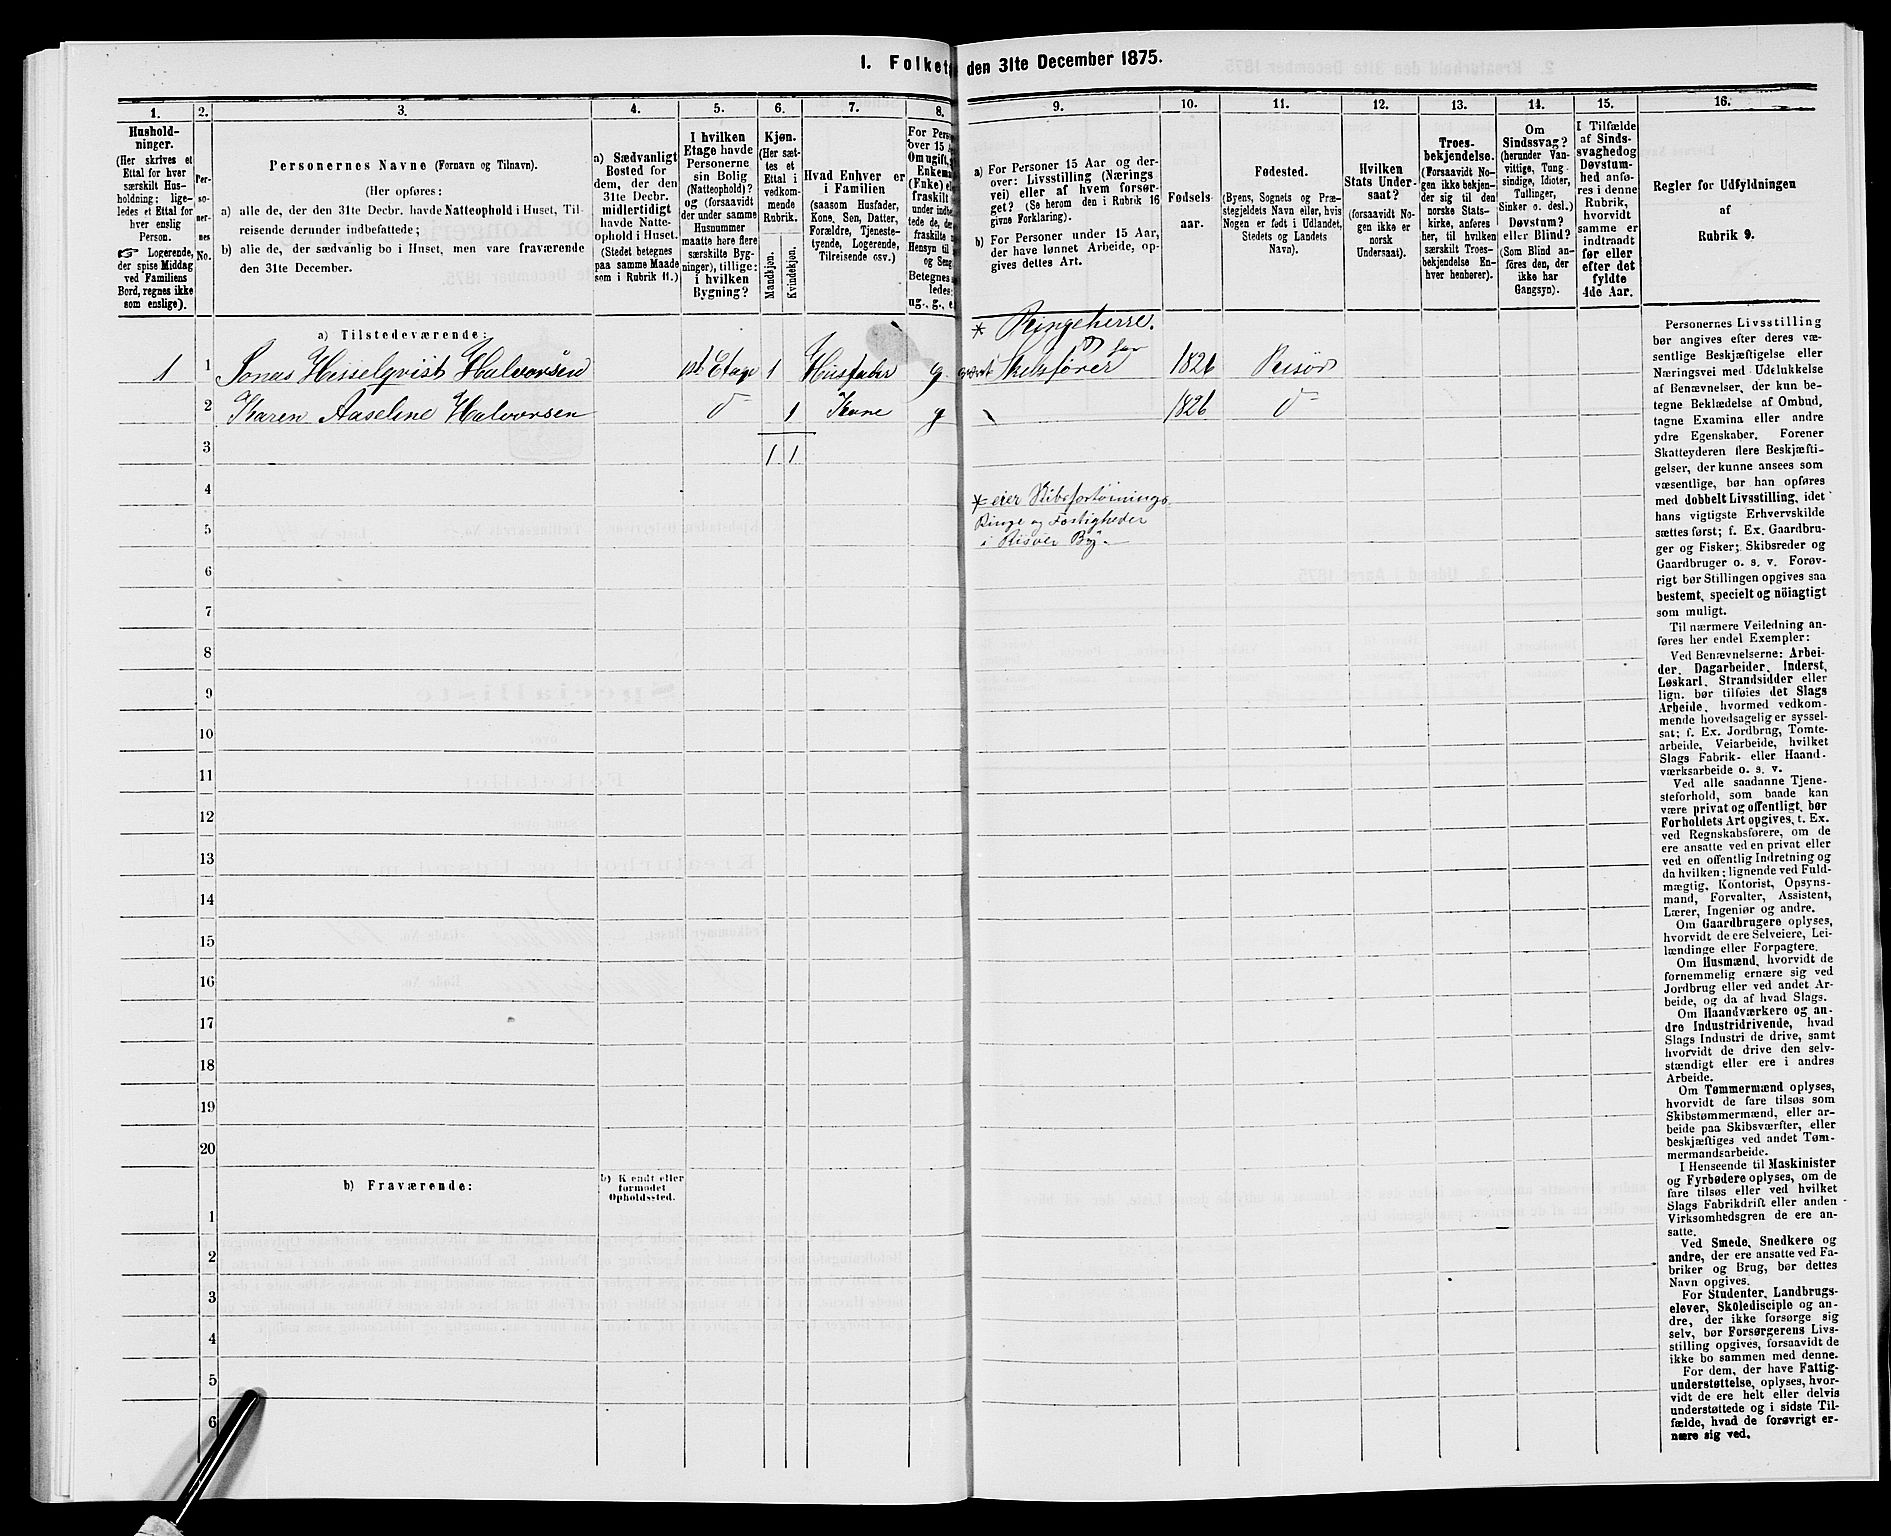 I. Folket
den 31te December 1875.
1.
Hushold-
ninger.
(Her skrives et
Ettal for hver
særskilt Hus-
holdning; lige-
ledes et Ettal for
hver enslig
Person.
Logerende,
der spise Middag
ved Familiens
Bord, regnes ikke
som enslige).
2.
Per-
so-
ner-
nes
No.
3.
Personernes Navne (Fornavn og Tilnavn).
(Her opføres:
a) alle de, der den 31te Decbr. havde Natteophold i Huset, Til-
reisende derunder indbefattede;
b) alle de, der sædvanlig bo i Huset, men vare fraværende
den 31te December.
4.
a) Sædvanligt
Bosted for
dem, der den
31te Decbr.
midlertidigt
havde Natte-
ophold i Huset.
(Stedet betegnes
paa samme Maade
som i Rubrik 11.)
5.
I hvilken
Etage havde
Personerne
sin Bolig
(Natteophold)?
og (forsaavidt
der under samme
Husnummer
maatte høre flere
særskilte Byg-
ninger), tillige:
i hvilken
Bygning?
6.
Kjøn.
(Her sæt-
tes et
Ettal i
vedkom-
mende
Rubrik.
Mandkjøn.
Kvindekjøn.
7.
Hvad Enhver er
i Familien
(saasom Husfader,
Kone, Søn, Datter,
Forældre, Tjeneste-
tyende, Logerende,
Tilreisende osv.)
8.
For Pers
over 15 A
Om ugift,
Enkema
(Enke) el
fraskilt
under indb
tede de, de
fraskilte
Hensyn til
og Seng
Betegnes
ledes:
ug., g., e.
9.
a) For Personer 15 Aar og der-
over: Livsstilling (Nærings
vei) eller af hvem forsør-
get? (Se herom den i Rubrik 16
givne Forklaring).
b) For Personer under 15 Aar,
der have lønnet Arbeide, op-
gives dettes Art.
10.
Fødsels-
aar.
11.
Fødested.
(Byens, Sognets og Præ-
stegjeldets Navn eller, hvis
Nogen er født i Udlandet,
Stedets og Landets
Navn).
12.
Hvilken
Stats Under-
saat?
(forsaavidt No-
gen ikke er
norsk
Undersaat).
13.
Troes-
bekjendelse.
(Forsaavidt No-
gen ikke bekjen-
der sig til den
norske Stats-
kirke, anføres
her, til hvilken
særskilt Troes-
bekjendelse En-
hver henhører).
14.
Om
Sindssvag?
(herunder Van-
vittige, Tung
sindige, Idioter,
Tullinger,
Sinker o. desl.)
Døvstum?
eller Blind?
(Som Blind an-
føres den, der
ikke har
Gangsyn).
15.
I Tilfælde
af Sinds-
svaghed og
Døvstum-
hed anfø-
res i denne
Rubrik,
hvorvidt
samme er
indtraadt
før eller
efter det
fyldte
4de Aar.
16.
Regler for Udfyldningen
af
Rubrik 9.
a) Tilstedeværende:
* Ringeherre.
1 1 Jonas Hesselqvist Halvorsen 1st Etage 1 Husfader g Skibsfører 1826 Risør
2 Karen Aaseline Halvorsen do 1 Kone g 1826 do
3 1 1
4 * eier Skibsfortøinings
5 Ringe og Fæstigheder
i Risøer By.
6
7
8
9
10
11
12
13
14
15
16
17
18
19
20
b) Fraværende:
b) Kjendt eller
formodet
Opholdssted.
1
2
3
4
5
6
Personernes Livsstilling
bør angives efter deres væ-
sentlige Beskjæftigelse eller
Næringsvei med Udelukkelse
af Benævnelser, der kun be-
tegne Beklædelse af Ombud,
tagne Examina eller andre
ydre Egenskaber. Forener
Skatteyderen flere Beskjæfti-
gelser, der kunne ansees som
væsentlige, bør han opføres
med dobbelt Livsstilling, idet
hans vigtigste Erhvervskilde
sættes først; f. Ex. Gaardbru-
ger og Fisker; Skibsreder og
Gaardbruger o. s. v. Forøv-
rigt bør Stillingen opgives saa
bestemt, specielt og nöiagtigt
som muligt.
Til nærmere Veiledning an-
føres her endel Exempler:
Ved Benævnelserne: Arbei-
der, Dagarbeider, Inderst,
Løskarl, Strandsidder eller
lign. bør tilføies det Slags
Arbeide, hvormed vedkom-
mende hovedsagelig er syssel-
sat; f. Ex. Jordbrug, Tomte-
arbeide, Veiarbeide, hvilket
Slags Fabrik- eller Haand-
værksarbeide o. s. v.
Ved alle saadanne Tjene-
steforhold, som baade kan
være privat og offentligt, bør
Forholdets Art opgives, t. Ex.
ved Regnskabsførere, om de
ere ansatte ved en privat eller
ved en offentlig Indretning og
da hvilken; lignende ved Fuld-
mægtig, Kontorist, Opsyns-
mand, Forvalter, Assistent,
Lærer, Ingeniør og andre.
Om Gaardbrugere oplyses,
hvorvidt de ere Selveiere, Lei-
lændinge eller Forpagtere.
Om Husmænd, hvorvidt de
fornemmelig ernære sig ved
Jordbrug eller ved andet Ar-
beide, og da af hvad Slags.
Om Haandværkere og an-
dre Industridrivende, hvad
Slags Industri de drive, samt
hvorvidt de drive den selv-
stændigt eller ere i andres
Arbeide.
Om Tømmermænd oplyses,
hvorvidt de fare tilsøs som
Skibstømmermænd, eller ar-
beide paa Skibsværfter, eller
beskjæftiges ved andet Tøm-
mermandsarbeide.
I Henseende til Maskinister
og Fyrbødere oplyses, om de
fare tilsøs eller ved hvilket
Slags Fabrikdrift eller anden
Virksomhedsgren de ere an-
satte.
Ved Smede, Snedkere og
andre, der ere ansatte ved Fa-
briker og Brug, bør dettes
Navn opgives.
For Studenter, Landbrugs-
elever, Skoledisciple og an-
dre, der ikke forsørge sig
selv, bør Forsørgerens Livs-
stilling opgives, forsaavidt de
ikke bo sammen med denne.
For dem, der have Fattig-
understøttelse, oplyses, hvor-
vidt de ere helt eller delvis
understøttede og i sidste Til-
fælde, hvad de forøvrigt er-
nære sig ved.